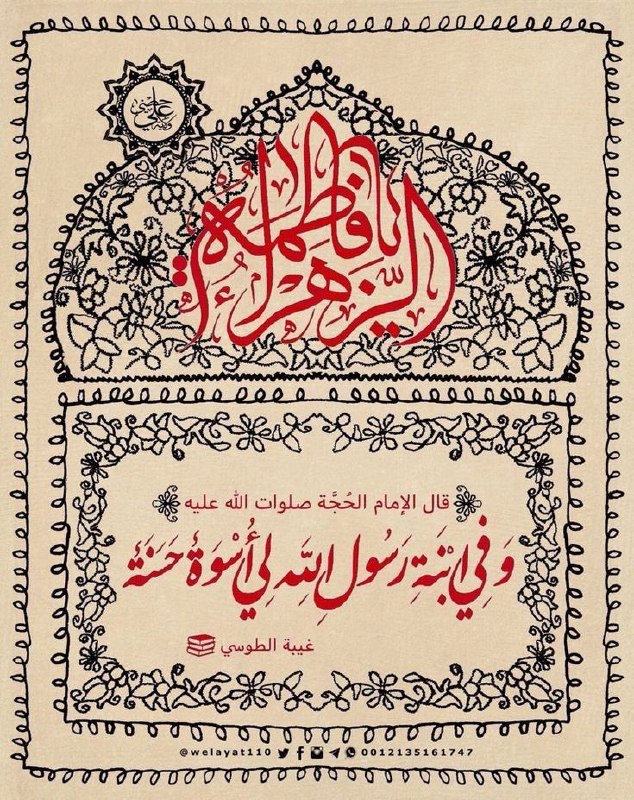 علي
يا فاطمة
الزهراء
قال الإمام الحُجَّة صلوات الله عليه
وَفِي ابْنَةِ رَسُولِ اللّٰهِ لِي أُسْوَةٌ حَسَنَةٌ
غيبة الطوسي
@welayat110 0012135161747